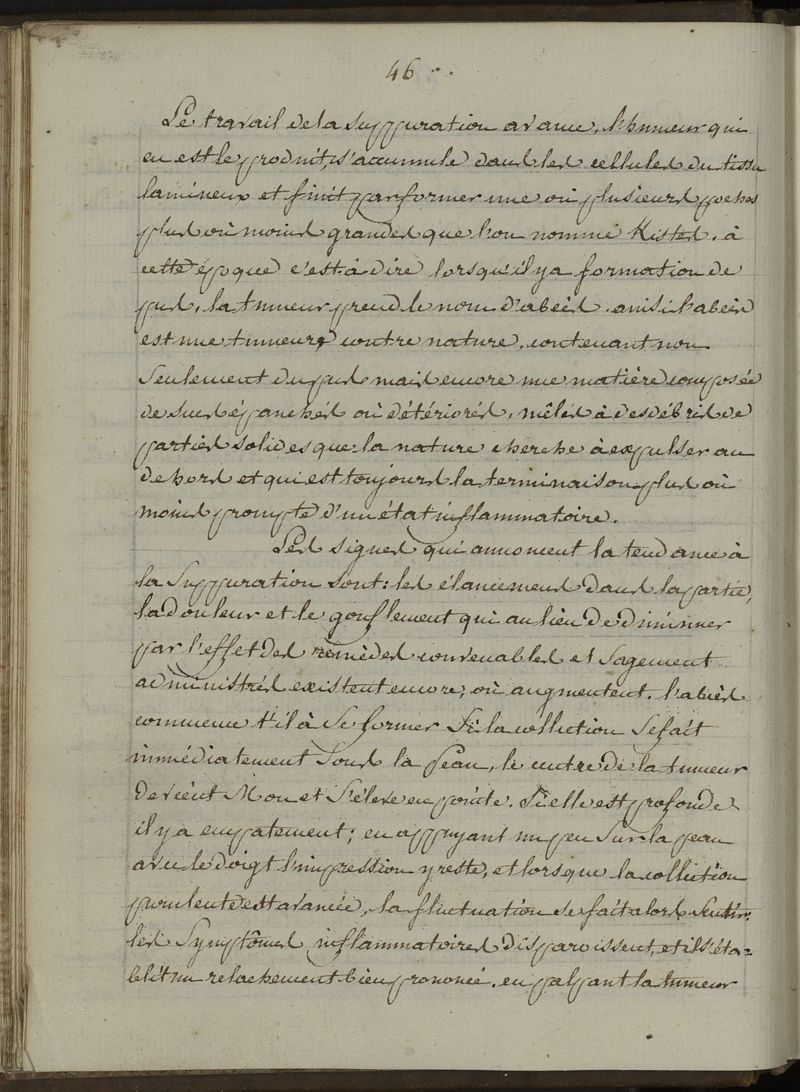 46
Le travail de la suppuration avance, l'humeur qui
en est le produit, s'accumule dans les cellules du tissu
lamineux et finit par former une ou plusieurs poches
plus ou moins grandes que l'on nomme Kistes. à
cette époque c'est-à-dire lorsqu'il y a formation de
pus, la tumeur prend le nom d'abcès. ainsi l'abcès
est une tumeur contre nature, contenant non
Seulement du pus mais encore une matière composée
de sucs épanchés où détériorés, mêlés à des débris de
parties solides que la nature cherche à expulser au
dehors et qui est toujours la terminaison plus où
moins prompte d'un état inflammatoire.
Les signes qui annoncent la tendance à
la Suppuration sont: les élancemens dans la partie,
la douleur et le gonflement qui au lieu de diminuer
par l'effet des remèdes convenables et Sagement
administrés existent encore, où augmentent. l'abcès
commence t'il à Se former Si la collection Se fait
immédiatement Sous la Peau, le centre de la tumeur
devient Mou et S'élève en pointe. Si elle est profonde
il y a empatement; en appuyant un peu Sur la peau
avec le doigt l'impression y reste, et lorsque la collection
purulente est avancée, la fluctuation se fait alors Sentir.
les Symptômes inflammatoires disparoissent, et il s'éta=
blit un relachement bien prononcé. en palpant la tumeur